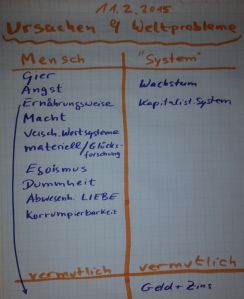 11.2.2015
Ursachen & Weltprobleme
Mensch
Gier
Angst
Ernährungsweise
Macht
Versch. Wertsysteme
materiell/Glücks-
forschung
Egoismus
Dummheit
Abwesenh. LIEBE
Korrumpierbarkeit
vermutlich
"System"
Wachstum
Kapitalist. System
vermutlich
Geld + Zins